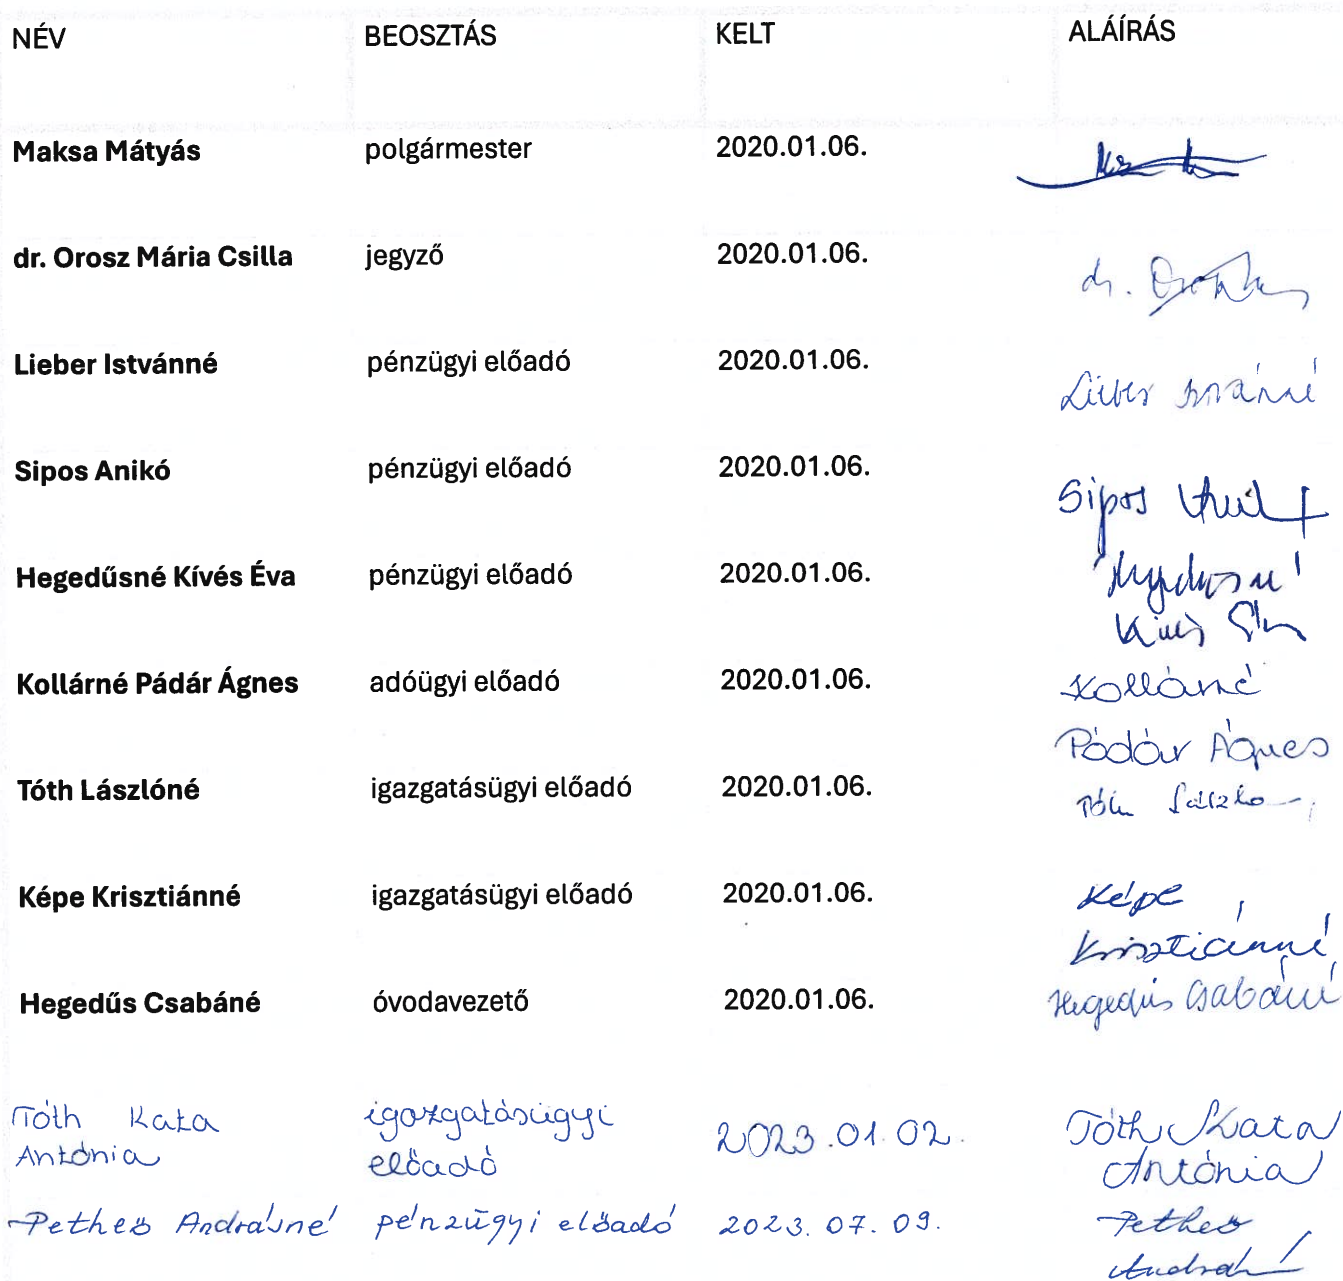 NÉV BEOSZTÁS KELT ALÁÍRÁS
Maksa Mátyás polgármester 2020.01.06.
dr. Orosz Mária Csilla jegyző 2020.01.06.
dr. Orosz
Lieber Istvánné pénzügyi előadó 2020.01.06.
Lieber Istvánné
Sipos Anikó pénzügyi előadó 2020.01.06.
Sipos Anikó
Hegedűsné Kívés Éva pénzügyi előadó 2020.01.06.
Hegedűsné
Kívés Éva
Kollárné Pádár Ágnes adóügyi előadó 2020.01.06.
Kollárné
Pádár Ágnes
Tóth Lászlóné igazgatásügyi előadó 2020.01.06.
Tóth Lászlóné
Képe Krisztiánné igazgatásügyi előadó 2020.01.06.
Képe
Krisztiánné
Hegedűs Csabáné óvodavezető 2020.01.06.
Hegedűs Csabáné
Tóth Kata igazgatásügyi 2023.01.02. Tóth Kata
Antónia előadó Antónia
Petheő Andrásné pénzügyi előadó 2023.07.09. Petheő
András­né